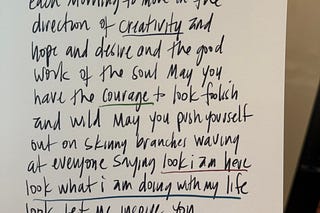 each morning to move in the
direction of creativity and
hope and desire and the good
work of the soul May you
have the courage to look foolish
and wild May you push yourself
out on skinny branches waving
at everyone saying look i am here
look what i am doing with my life
look let me inspire you